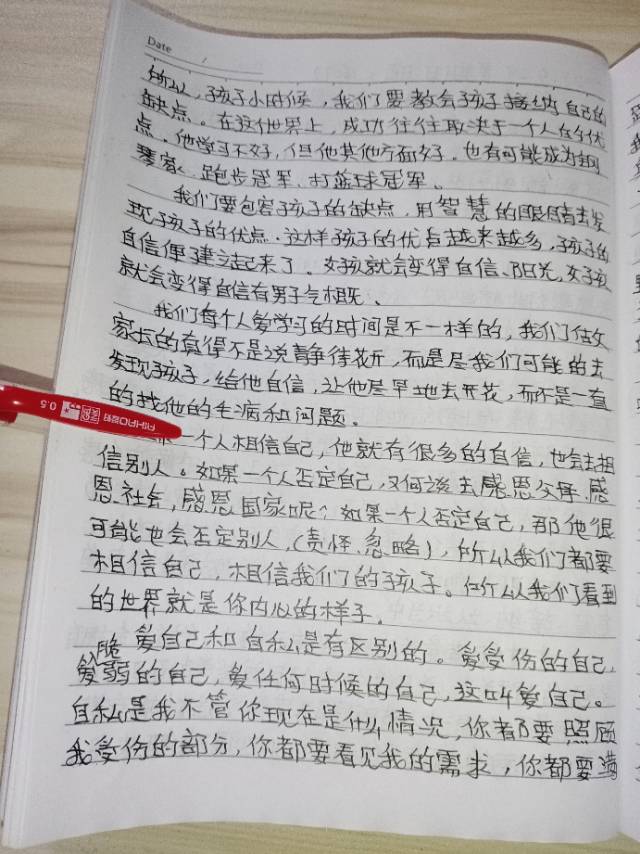 Date
所以,孩子小时候,我们要教会孩子接纳自己的
缺点。在这个世界上,成功往往取决于一个人的优
点。他学习不好,但他其他方面好。也有可能成为钢
琴家、跑步冠军、打篮球冠军。
我们要包容孩子的缺点,用智慧的眼睛去发
现孩子的优点.这样孩子的优点越来越多,孩子的
自信便建立起来了。女孩就会变得自信、阳光,女孩
就会变得自信有男子气概。
我们每个人爱学习的时间是不一样的,我们做父
家长的真得不是说静待花开,而是尽我们可能的去
发现孩子,给他自信,让他尽早地去开花,而不是一直
的找他的毛病和问题。
一个人相信自己,他就有很多的自信,也会去相
信别人。如果一个人否定自己,又何谈去感恩父母、感
恩社会,感恩国家呢?如果一个人否定自己,那他很
可能也会否定别人,(责怪、忽略),所以我们都要
相信自己,相信我们的孩子。所以我们看到
的世界就是你内心的样子。
爱自己和自私是有区别的。爱受伤的自己,
爱脆弱的自己,爱任何时候的自己,这叫爱自己。
自私是我不管你现在是什么情况,你都要照顾
我受伤的部分,你都要看见我的需求,你都要满
AIHAO爱好
0.5